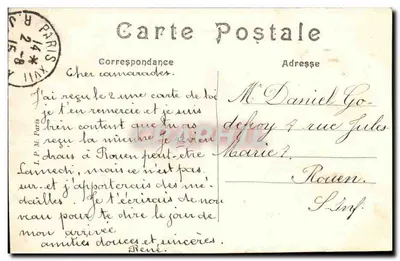 Carte Postale
Correspondance
Adresse
PARIS XVII
14 *
2 - 8
15
Cher camarades.
J'ai reçu le 2 une carte de toi
je t'en remercie et je suis
bien content que tu as
reçu la mienne je vien
drais à Rouen peut-être
Samedi, mais ce n'est pas
sur et j'apporterais des mé
dailles. Je t'écrirais de nou
veau pour te dire le jour de
mon arrivée
amitiés douces et sincères.
René.
Mr Daniel Go-
defroy 4 rue Jules
Rouen.
S-Inf.
I. P. M. Paris